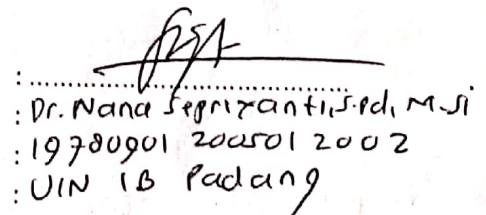 : ..............................
: Dr. Nana Sepriyanti, S.Pd, M.Si
: 19780901 200501 2002
: UIN IB Padang